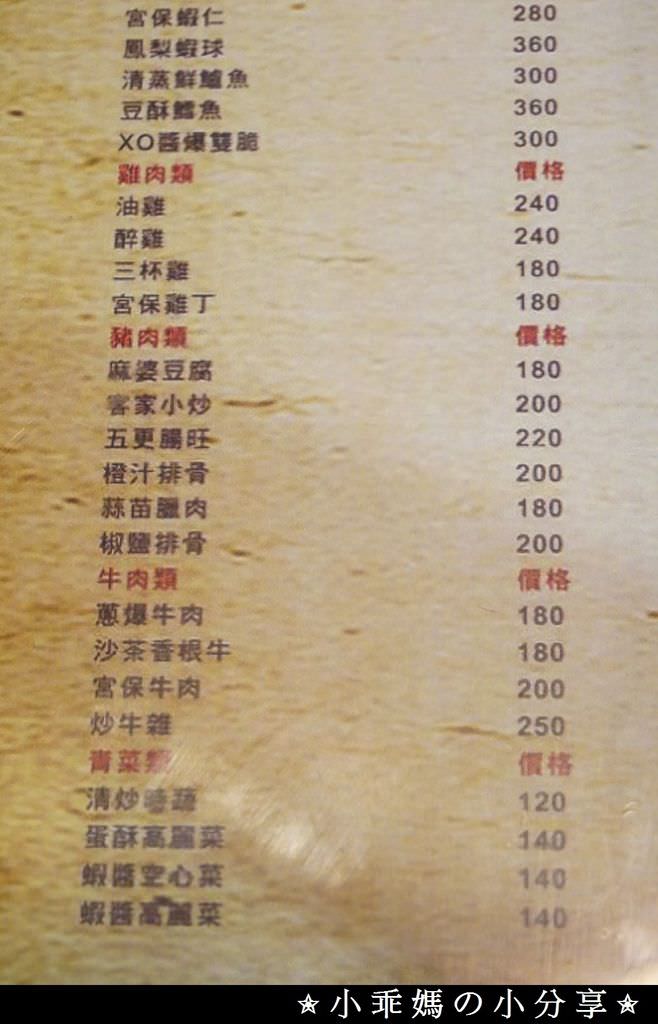 宮保蝦仁 280
鳳梨蝦球 360
清蒸鮮鱸魚 300
豆酥鱈魚 360
XO醬爆雙脆 300
雞肉類 價格
油雞 240
醉雞 240
三杯雞 180
宮保雞丁 180
豬肉類 價格
麻婆豆腐 180
客家小炒 200
五更腸旺 220
橙汁排骨 200
蒜苗臘肉 180
椒鹽排骨 200
牛肉類 價格
蔥爆牛肉 180
沙茶香根牛 180
宮保牛肉 200
炒牛雜 250
青菜類 價格
清炒時蔬 120
蛋酥高麗菜 140
蝦醬空心菜 140
蝦醬高麗菜 140
✭小乖媽の小分享✭